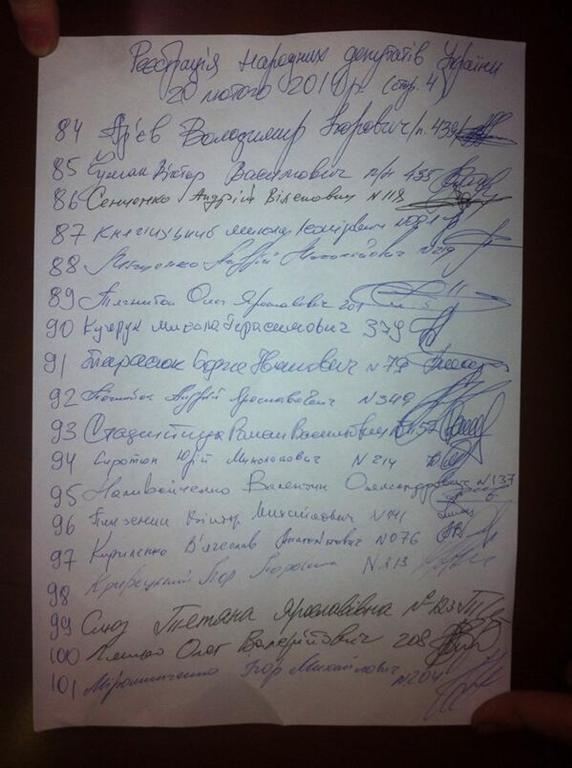 Реєстрація народних депутатів України
20 лютого 2014р. (стор. 4)
84 Ар'єв Володимир Ігорович
85 Віктор Васильович 455
86 Сенченко Андрій Віленович N 118
87 Княжицький Микола
88 Андрій Миколайович N 219
89 Тягнибок Олег Ярославович
90 Кучерук Микола Герасимович 379
91 Тарасюк Борис Іванович N 79
92 Тягнибок Андрій Ярославович N 349
93 Роман Васильович
94 Сиротюк Юрій Миколайович N 214
95 Наливайченко Валентин Олександрович N 137
96 Пинзеник Віктор Михайлович N 041
97 Кириленко В'ячеслав Анатолійович N 076
98 Ігор N 213
99 Слюз Тетяна Ярославівна N 123
100 Ляшко Олег Валерійович 208
101 Мірошниченко Ігор Михайлович N 204